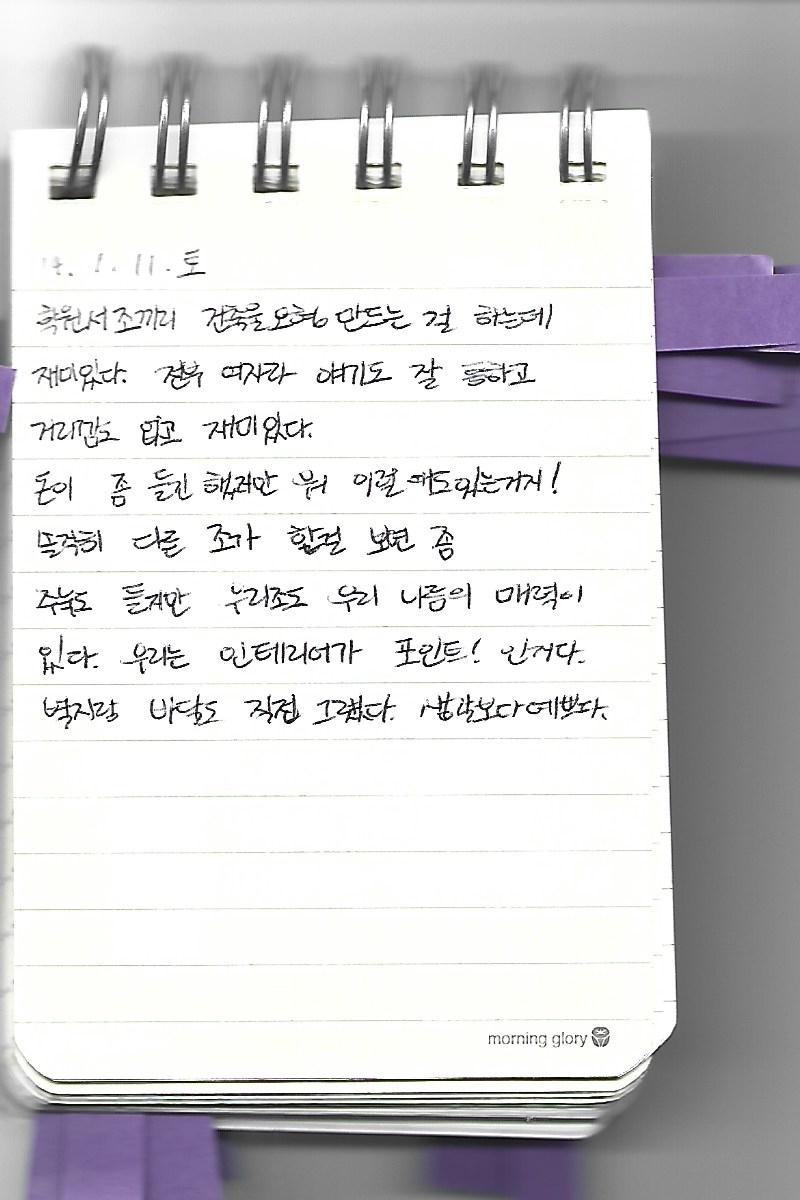 14. 1. 11. 토
학원서 조끼리 건축물모형 만드는 걸 하는데
재미있다. 전부 여자라 얘기도 잘 통하고
거리낌도 없고 재미있다.
돈이 좀 들긴 했지만 뭐 이럴 때도있는거지!
솔직히 다른 조가 한걸 보면 좀
주눅도 들지만 우리조도 우리 나름의 매력이
있다. 우리는 인테리어가 포인트! 인거다.
벽지랑 바닥도 직접 그렸다. 생각보다예쁘다.
morning glory